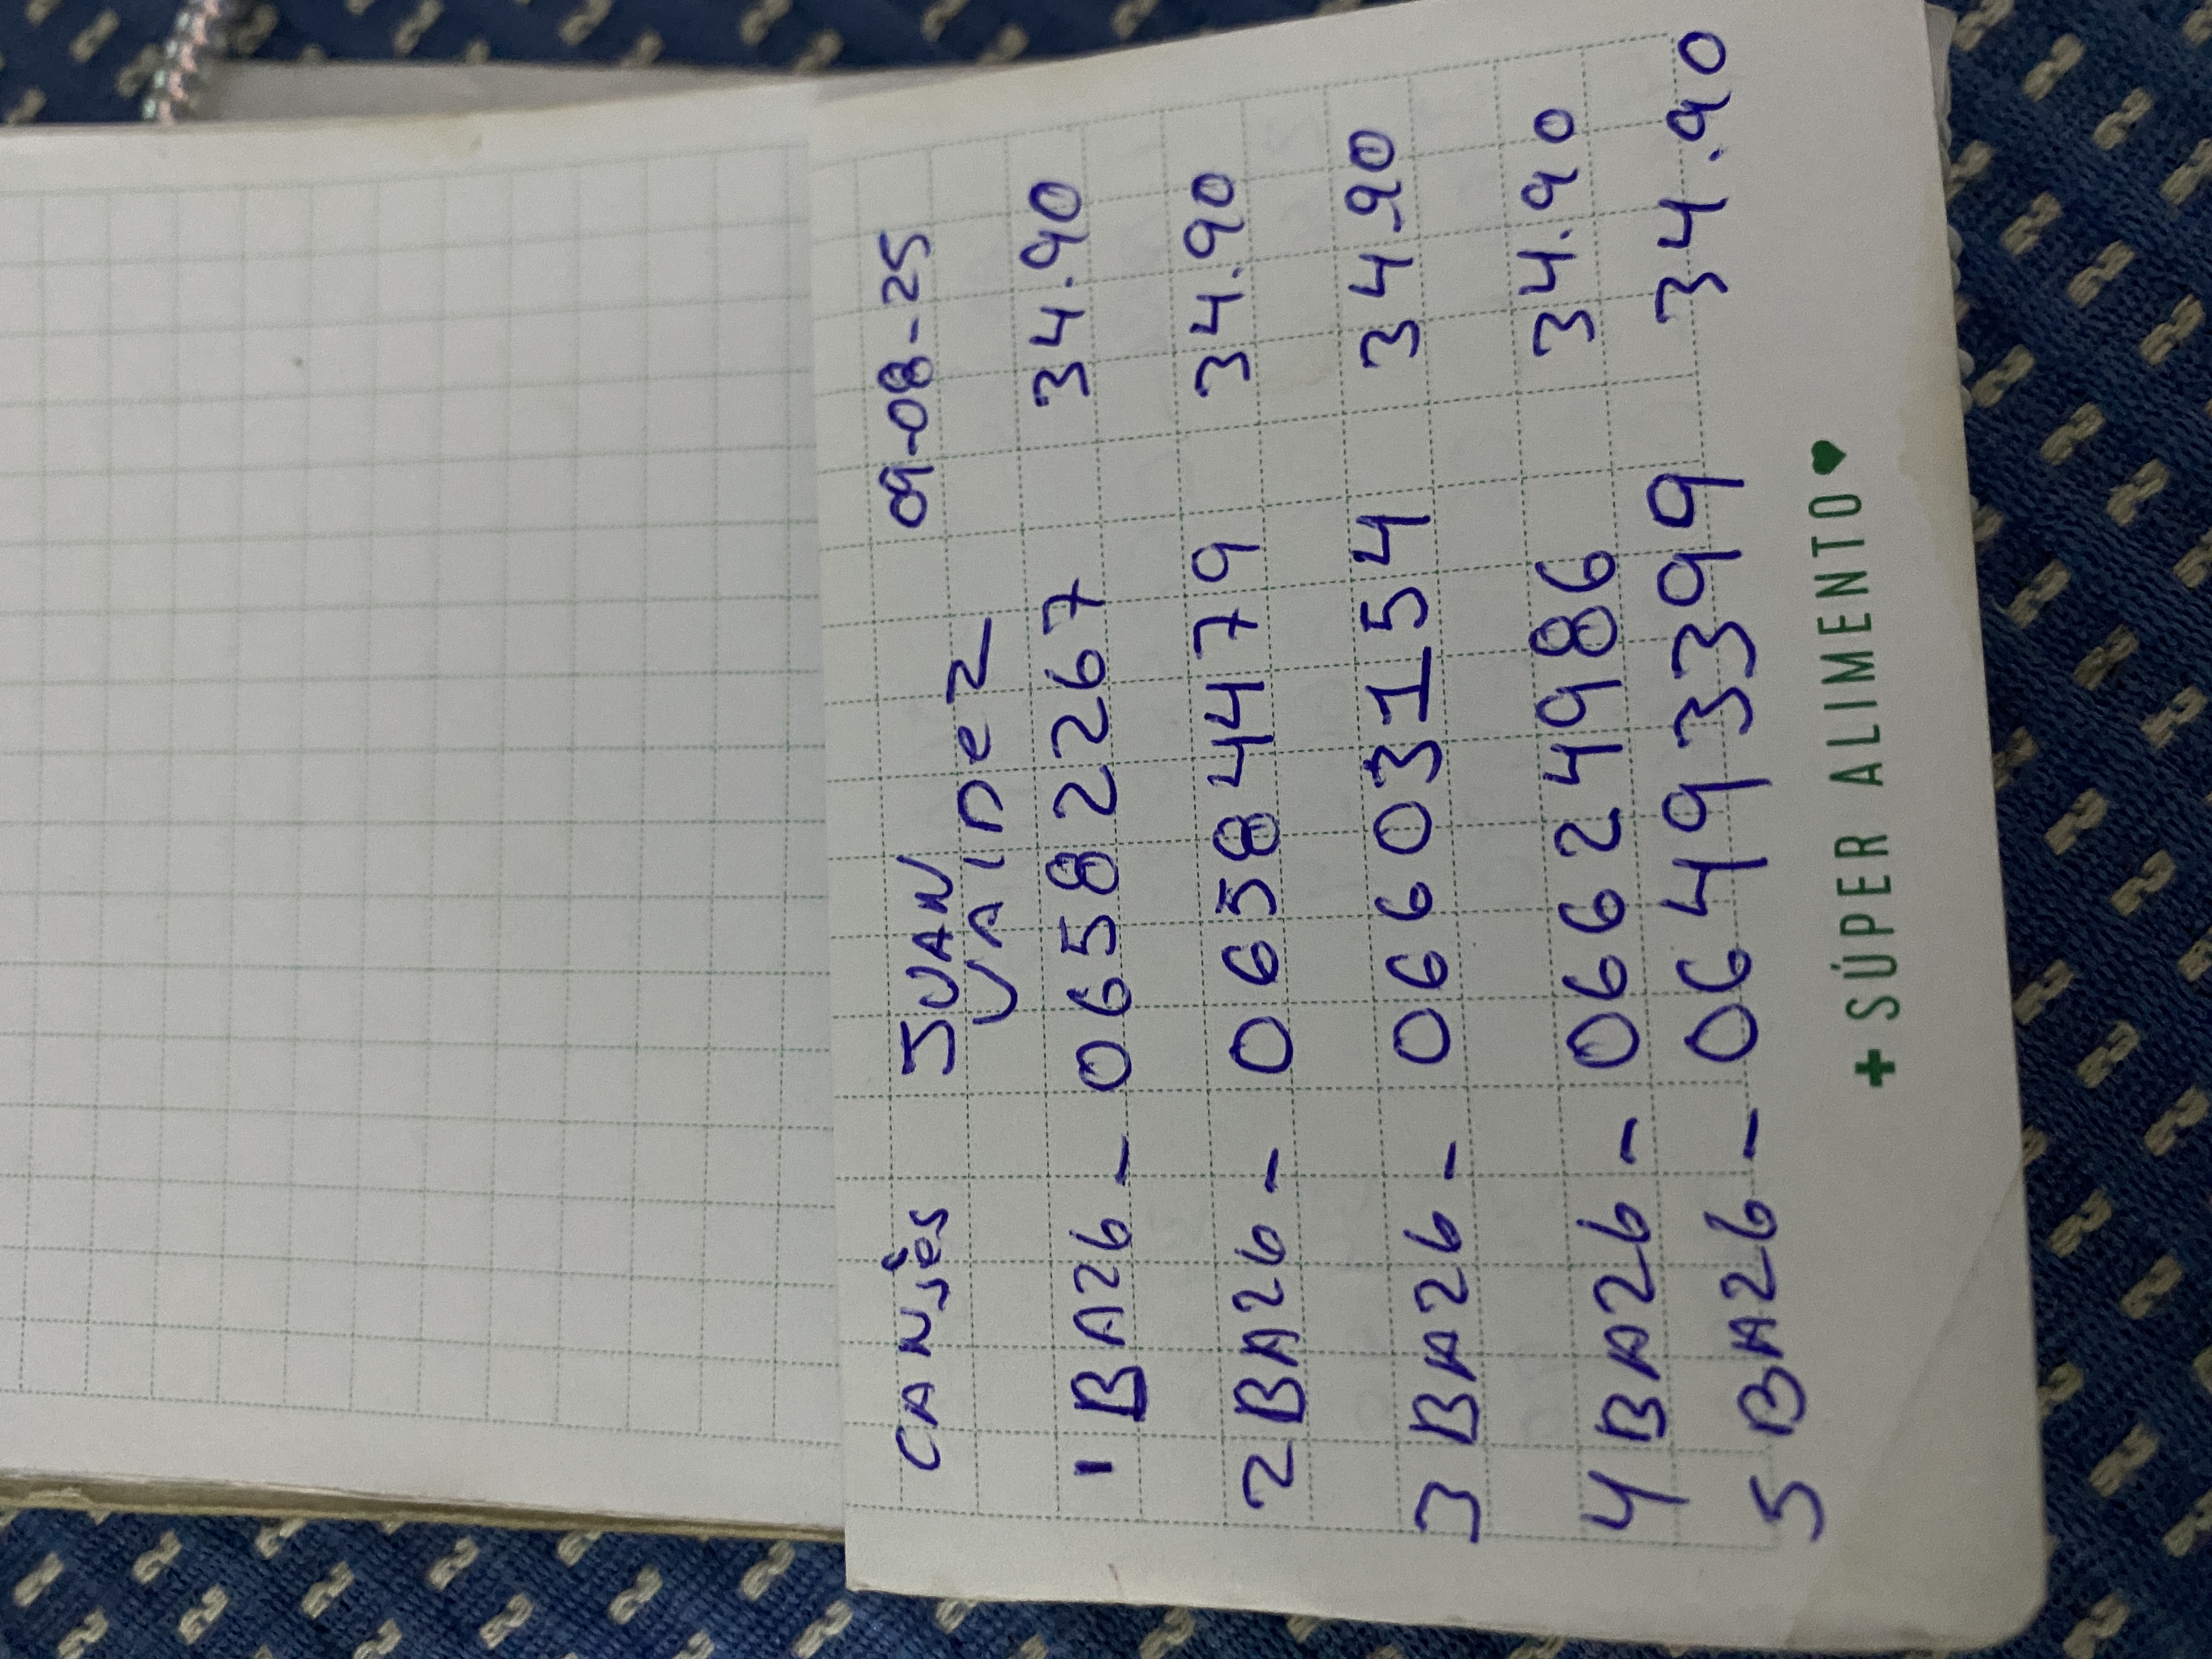 CANjês JUAN 09-08-25
VAlDez
1 BA26 - 06582267 34.90
2 BA26 - 06584479 34.90
3 BA26 - 06603154 34.90
4 BA26 - 06624986 34.90
5 BA26 - 06493399 34.90
+ SÚPER ALIMENTO ♥